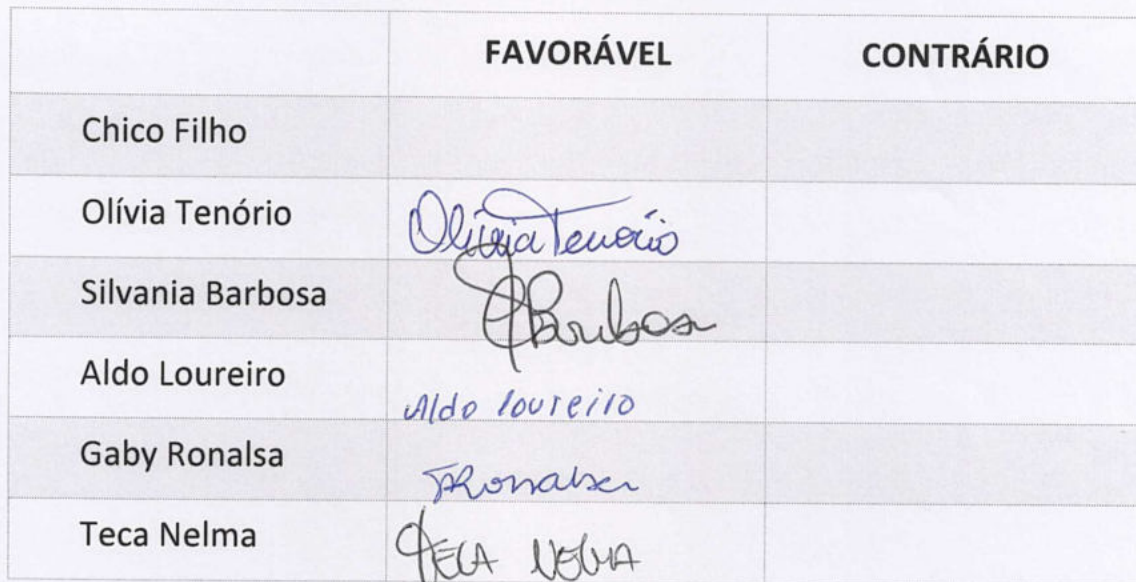 FAVORÁVEL CONTRÁRIO
Chico Filho
Olívia Tenório Olívia Tenório
Silvania Barbosa SBarbosa
Aldo Loureiro Aldo loureiro
Gaby Ronalsa Ronalsa
Teca Nelma TECA NELMA